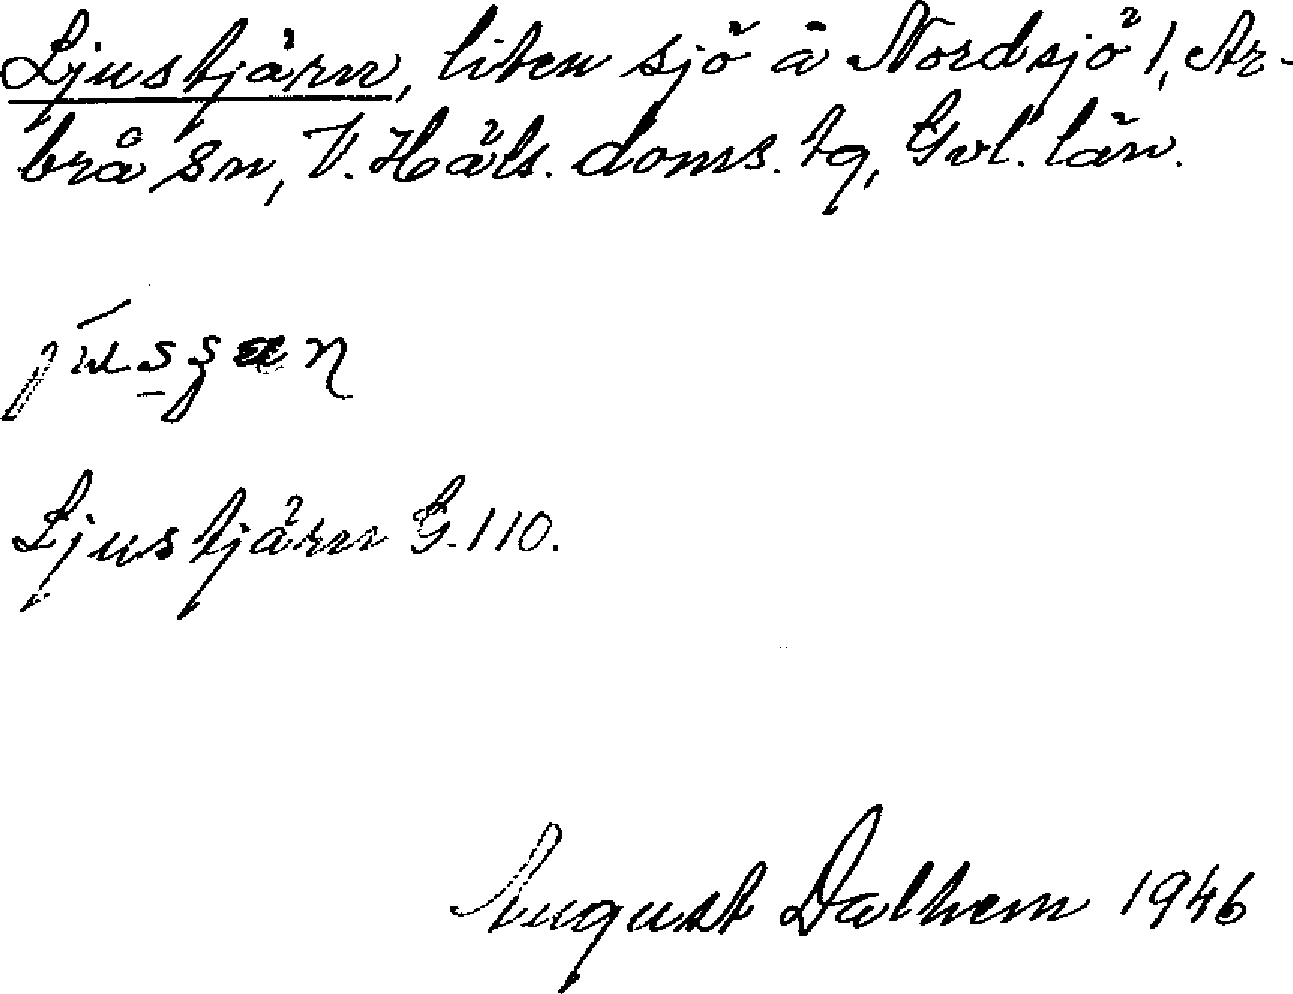 Ljustjärn, liten sjö å Nordsjö 1, Ar-
brå sn, V. Häls. doms. tg, Gvl. län.
Ljustjärn G. 110.
August Dalhem 1946